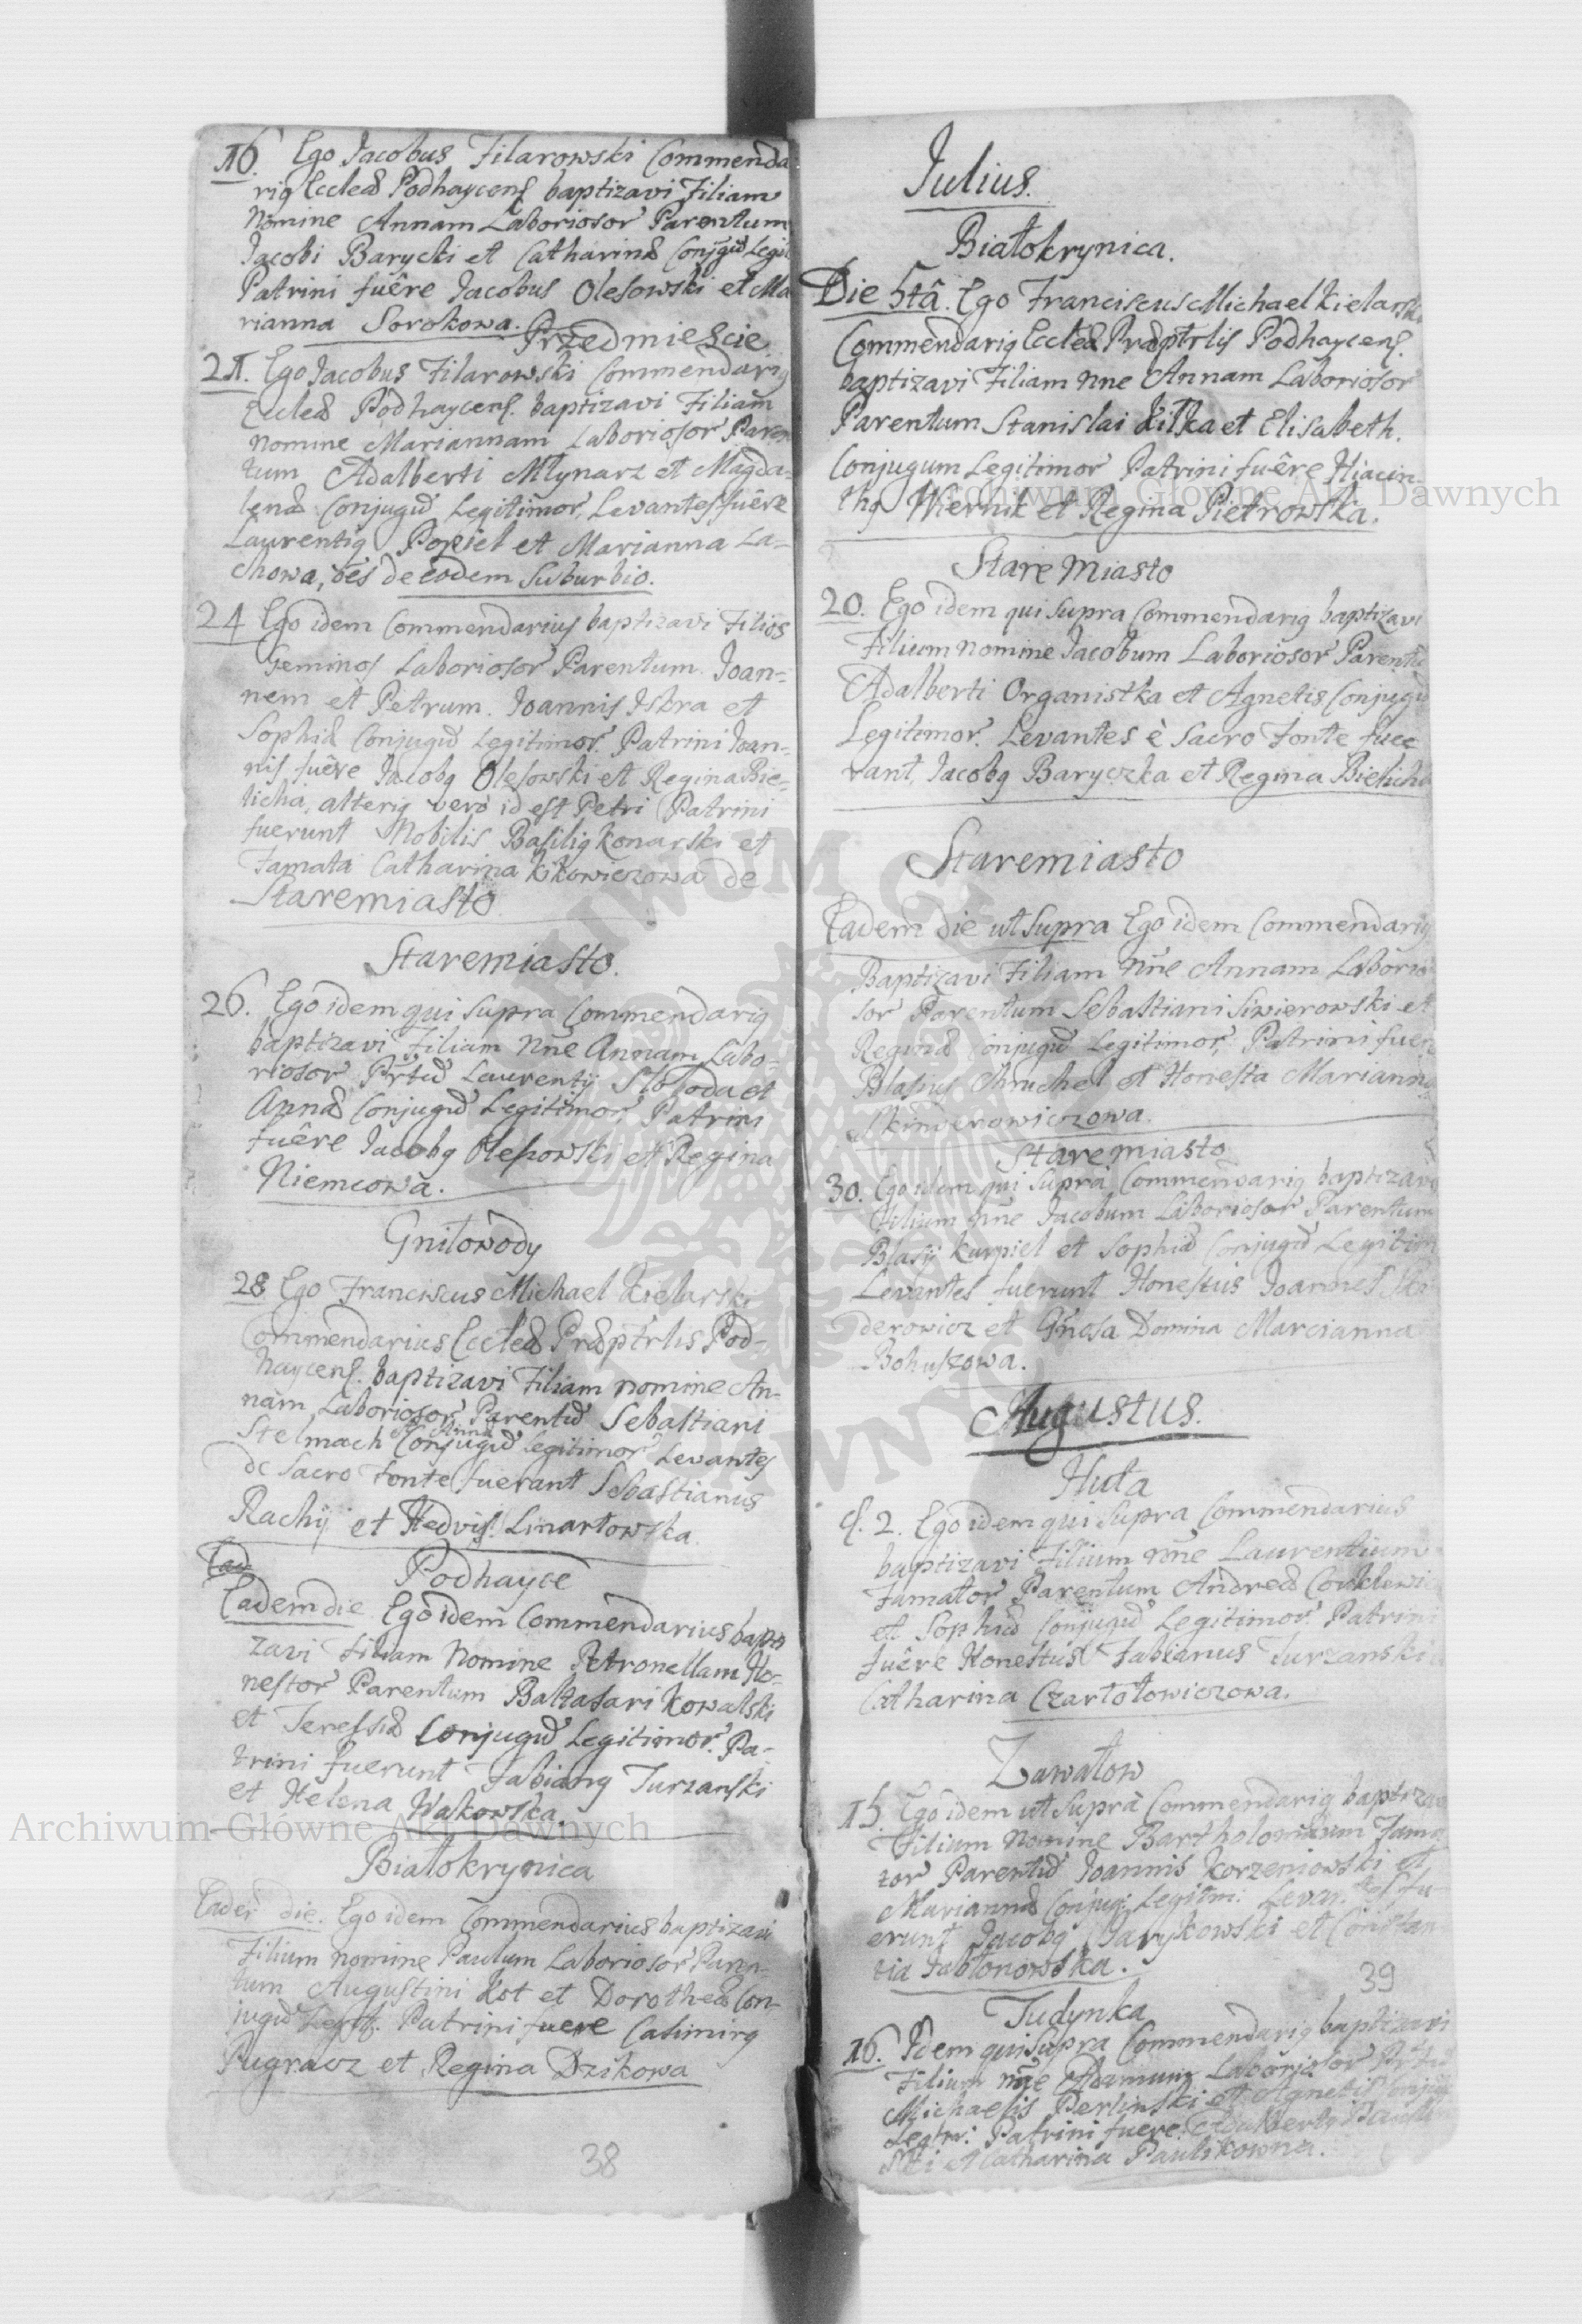 16. Ego Jacobus Filarowski Commenda
riq Eccleæ Podhaycens baptizavi Filiam
Nomine Annam Laboriosor Parentum
Jacobi Barycki et Catharinæ Conjgũ Legit
Patrini fuêre Jacobus Olesowski et Ma
rianna Sorokowa.
Przedmieście
21. Ego Jacobus Filarowski Commendariq
Eccleæ Podhaycens. baptizavi Filiam
nomine Mariannam Laboriosor Paren
tum Adalberti Młynarz et Magda-
lenæ Conjugũ Legitimor, Levantes fuêre
Laurentiq Popiel et Marianna La-
chowa, oēs de eodem Suburbio.
24 Ego idem Commendarius baptizavi Filios
Geminos Laboriosor Parentum. Joan-
nem et Petrum. Joannis Iskra et
Sophiæ Conjugũ Legitimor. Patrini Joan-
nis fuêre Jacobq Olesowski et Regina Bie-
licha, alteriq vero id est Petri Patrini
fuerunt Nobilis Basiliq Konarski et
Famata Catharina Kikowiczowa de
Staremiasto
Staremiasto.
26. Ego idem qui supra Commendariq
baptizavi Filiam Nñe Annam Labo-
riosor Prtũ Laurentij Słoboda et
Annæ Conjugũ Legitimor, Patrini
fuêre Jacobq Olesowski et Regina
Niemcowa.
Gniłowody
28 Ego Franciscus Michael Kielarski
Commendarius Eccleæ Præptrlis Pod-
haycens. baptizavi Filiam nomine An-
nam Laboriosor Parentũ Sebastiani
et Anna
Stelmach Conjugũ Legitimor Levantes
de Sacro Fonte fuerant Sebastianus
Rachij et Hedvis. Linartowska.
Ead
Podhayce
Eadem die Ego idem Commendarius bapti
zavi Filiam Nomine Petronellam Ho-
nestor Parentum Baltasari Kowalski
et Teressiæ Conjugũ Legitimor. Pa-
trini fuerunt Fabianq Turzanski
et Helena Wakowska.
Białokrynica
Eadē die. Ego idem Commendarius baptizavi
Filium nomine Paulum Laboriosor Paren-
tum Augustini Kot et Dorotheæ Con-
jugũ Legit. Patrini fuere Casimirq
Pugracz et Regina Dzikowa
38
Julius.
Białokrynica.
Die 5tâ. Ego Franciscus Michael Kielarski
Commendariq Eccleæ Præptrlis Podhaycens.
baptizavi Filiam Nne Annam Laboriosor
Parentum Stanislai Kitka et Elisabeth.
Conjugum Legitimor Patrini fuêre Hiacin-
thq Wiernik et Regina Pietrowska.
Stare Miasto
20. Ego idem qui supra Commendariq baptizavi
Filium nomine Jacobum Laboriosor Parentũ
Adalberti Organistka et Agnetis Conjugũ
Legitimor. Levantes è Sacro Fonte fue
rant Jacobq Baryczka et Regina Bielicha
Staremiasto
Eadem die ut supra Ego idem Commendariq
Baptizavi Filiam Nñe Annam Laborio
sor Parentum Sebastiani Siwierowski et
Reginæ Conjugũ Legitimor, Patrini fuer
Blasius Chruchel et Honesta Marianna
Skinderowiczowa.
Staremiasto
30. Ego idem qui supra Commendariq baptizavi
Filium Nñe Jacobum Laboriosor Parentum
Blasij Kurpiel et Sophiæ Conjugũ Legitim
Levantes fuerunt Honestus Joannes Skin
derowicz et Gñosa Domina Marcianna
Bohuszowa.
Augustus.
Huta
d. 2. Ego idem qui supra Commendarius
baptizavi Filium Nñe Laurentium
Famator Parentum Andreæ
et Sophiæ Conjugũ Legitimor. Patrini
fuêre Honestus Fabianus Turzanski
Catharina Czartołowiczowa.
Zawałow
15. Ego idem ut supra Commendariq baptiza
Filium Nomine Bartholomæum Fama
tor Parentũ Joannis Korzeniowski et
Mariannæ Conjug: Legitm: Levantes fu
erunt Jacobq Darykowski et Constan
tia Jabłonowska.
39
Tudynka
16. Idem qui supra Commendariq baptizavi
Filium Nñe Adamum Laboriosor Prtũ
Michaelis Perlinski et Agnetis Conjug
Legtm: Patrini fuere. Adalbertq Pauli
ski et Catharina Paulikowna.
Archiwum Główne Akt Dawnych
Archiwum Główne Akt Dawnych